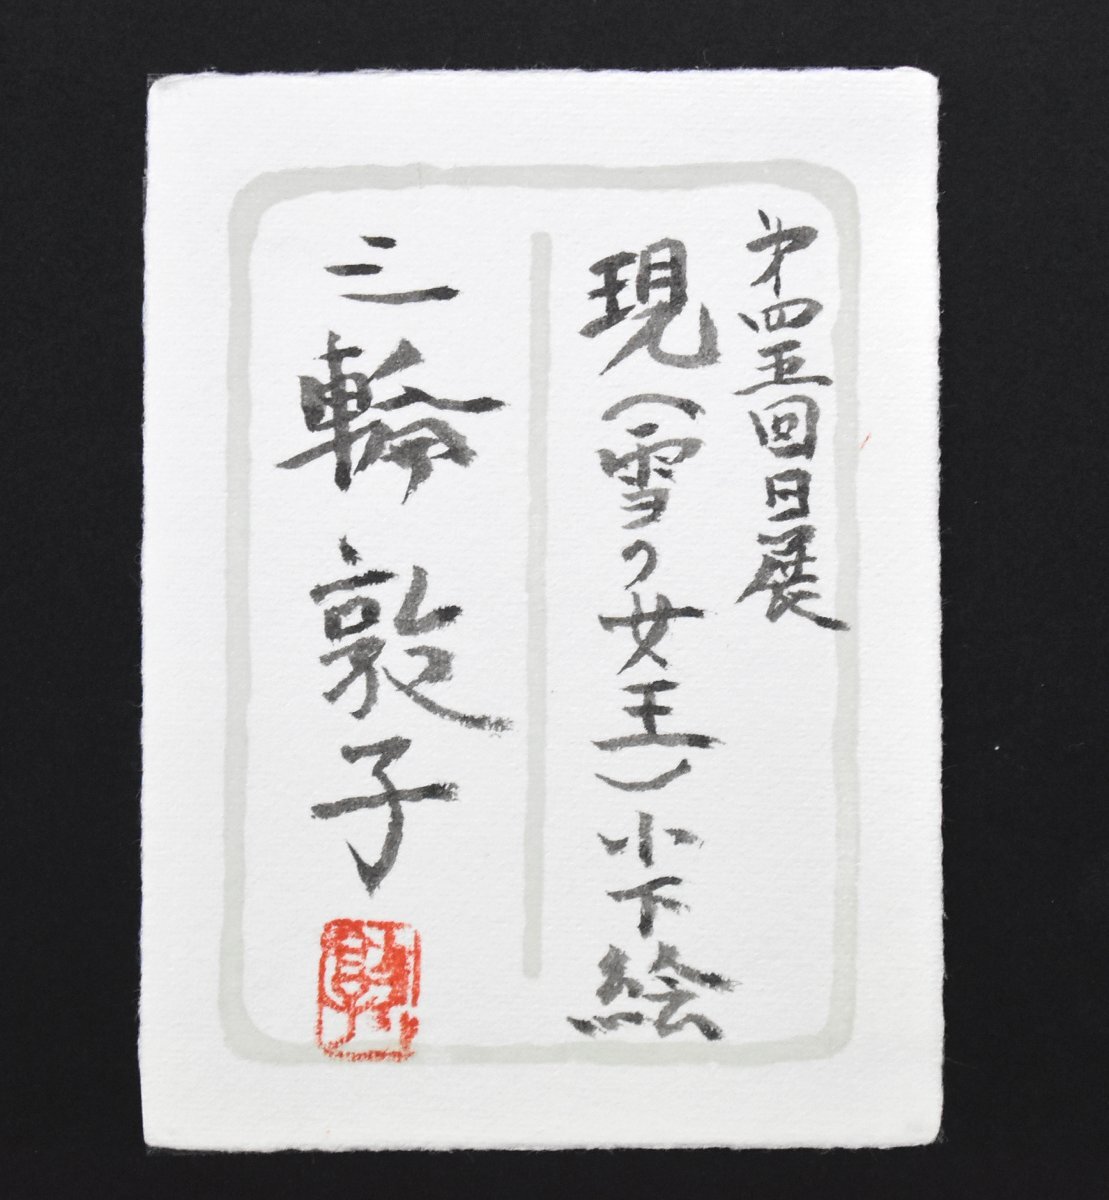 第四五回日展
現(雪の女王)小下絵
三輪敦子